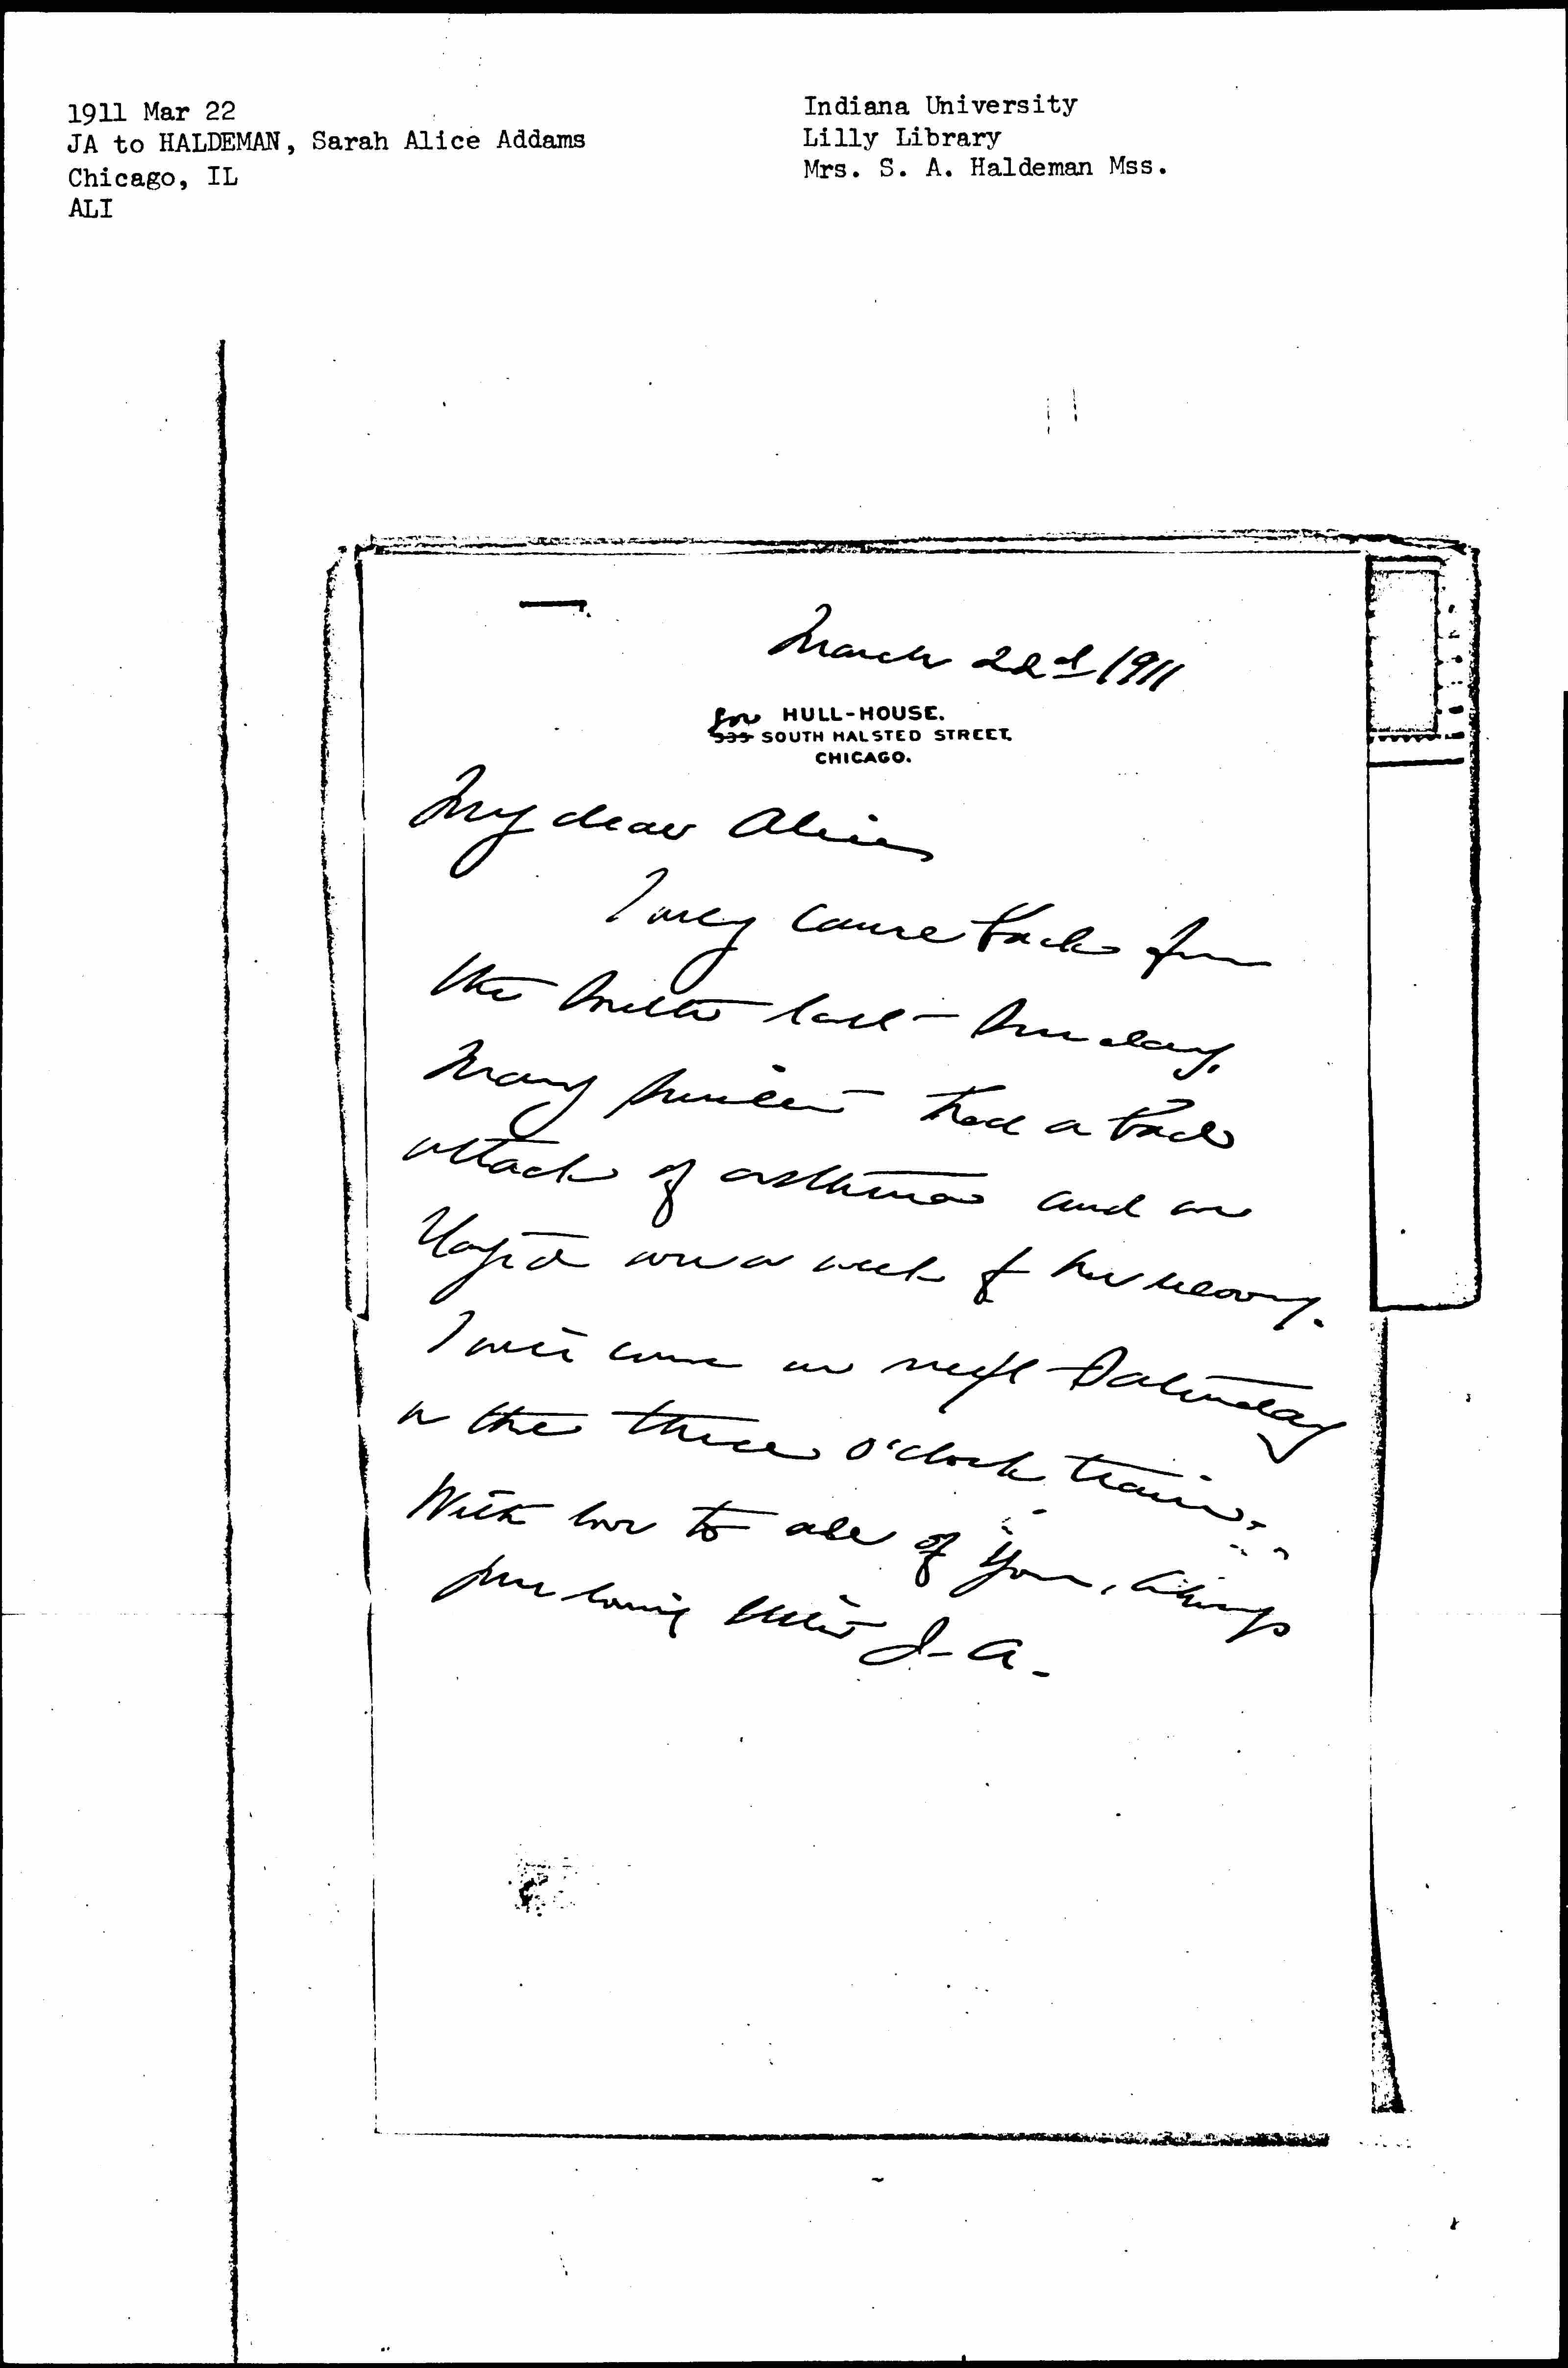 1911 Mar 22
JA to HALDEMAN, Sarah Alice Addams
Chicago, IL
ALI
Indiana University
Lilly Library
Mrs. S. A. Haldeman Mss.
March 22d 1911
800 HULL-HOUSE.
335 SOUTH HALSTED STREET.
CHICAGO.
My dear Alice
I only came back from
the South last Sunday.
Mary Smith had a bad
attack of asthma and we
stay'd over a week for her recovery.
I will come on next Saturday
on the three o'clock train.
With love to all of you, always
your loving sister J- A-